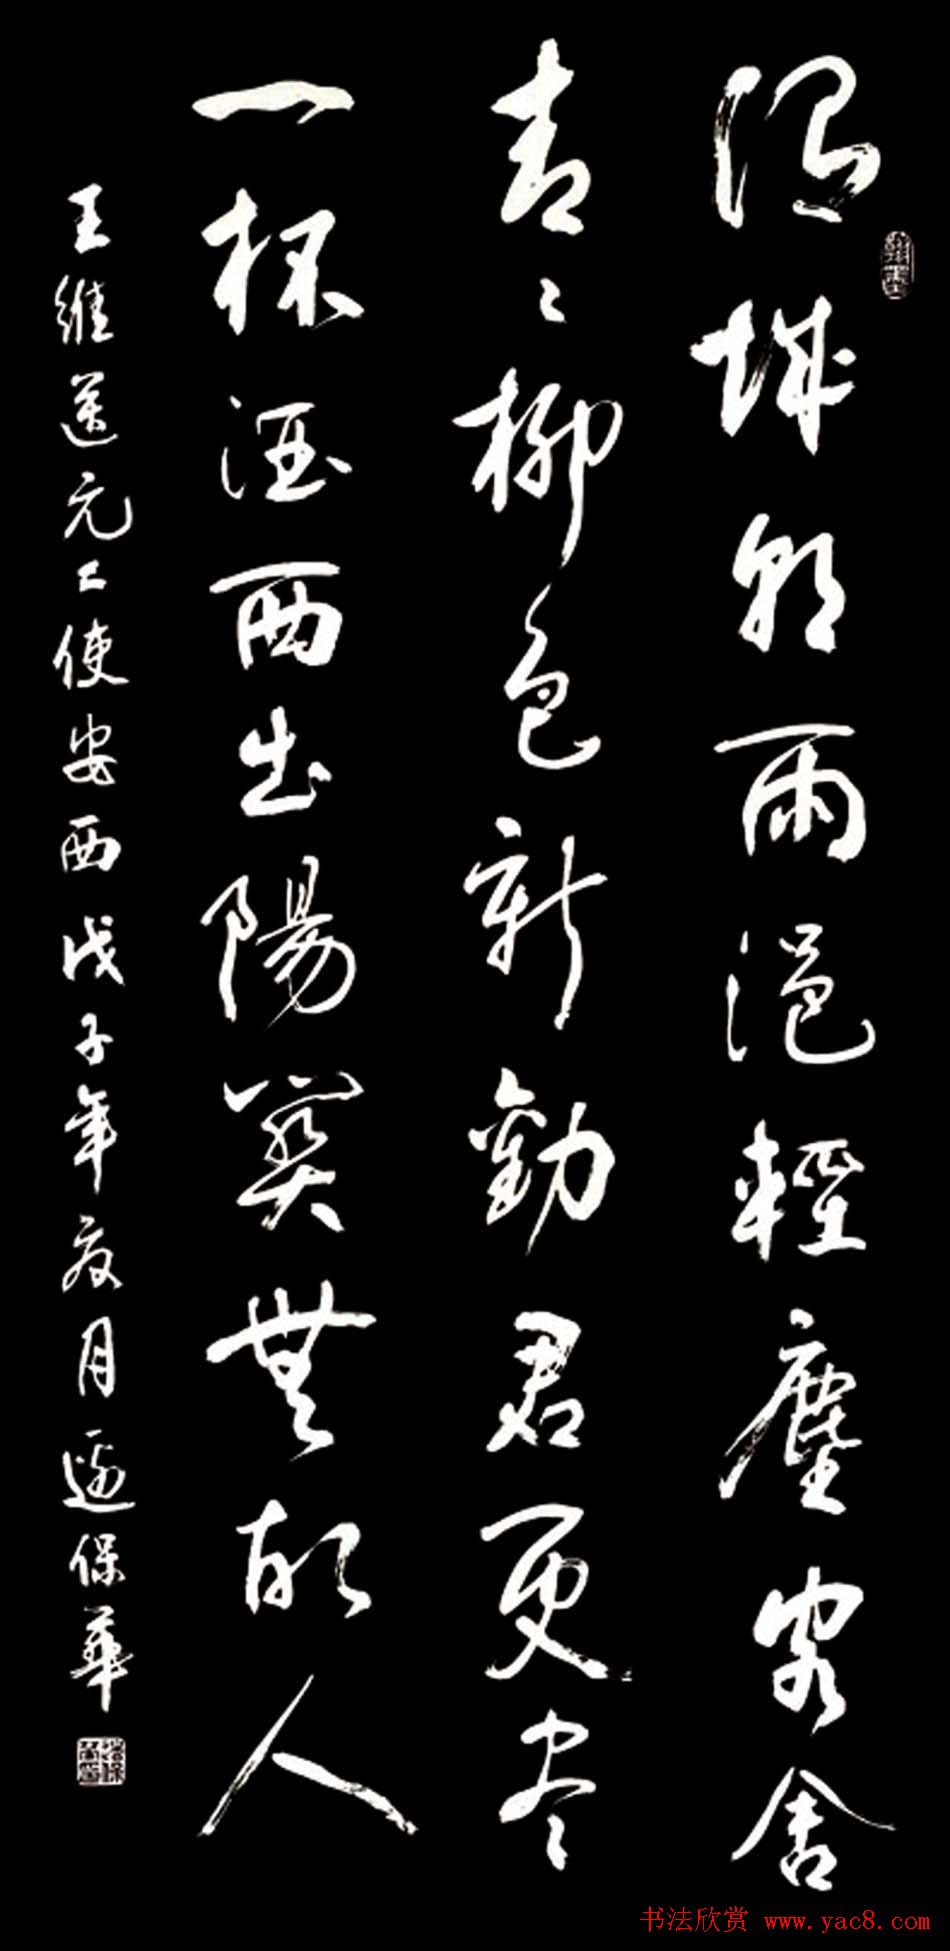 渭城朝雨浥輕塵客舍
青々柳色新勸君更尽
一杯酒西出陽關無故人
王維送元二使安西戊子年夏月保華
翰墨
书法欣赏 www.yac8.com